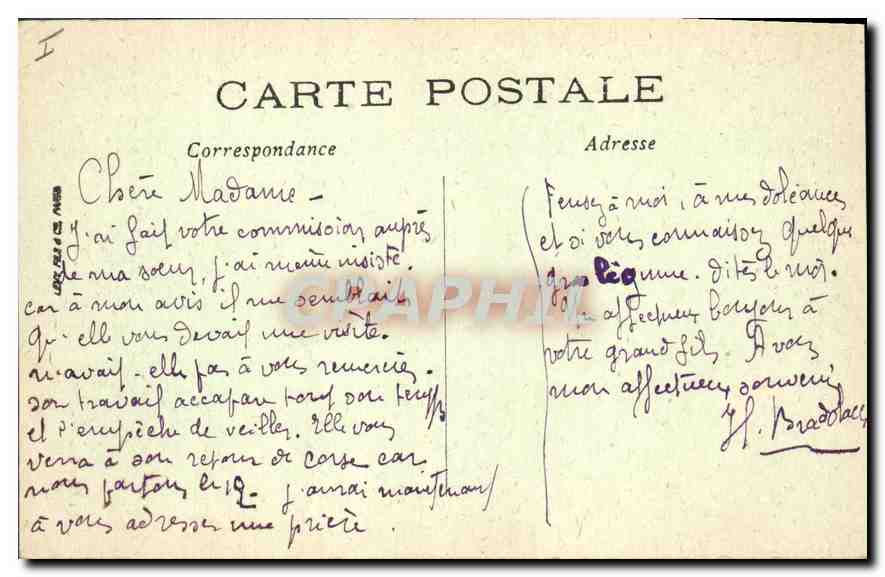 I
CARTE POSTALE
Correspondance
Adresse
Chère Madame -
J'ai fait votre commission auprès
de ma soeur, j'ai même insisté.
car à mon avis il me semblait
qu'elle vous devait une visite.
n'avait-elle pas à vous remercier.
son travail accapare tout son temps
et l'empêche de veiller. Elle vous
verra à son retour de Corse car
nous partons le 12 - j'aurai maintenant
à vous adresser une prière.
Pensez à moi, à mes doléances
et si vous connaissez quelque
grosse légume. dites le moi.
Un affectueux bonjour à
votre grand fils. A vous
mon affectueux souvenir
H.
CHAPHIL